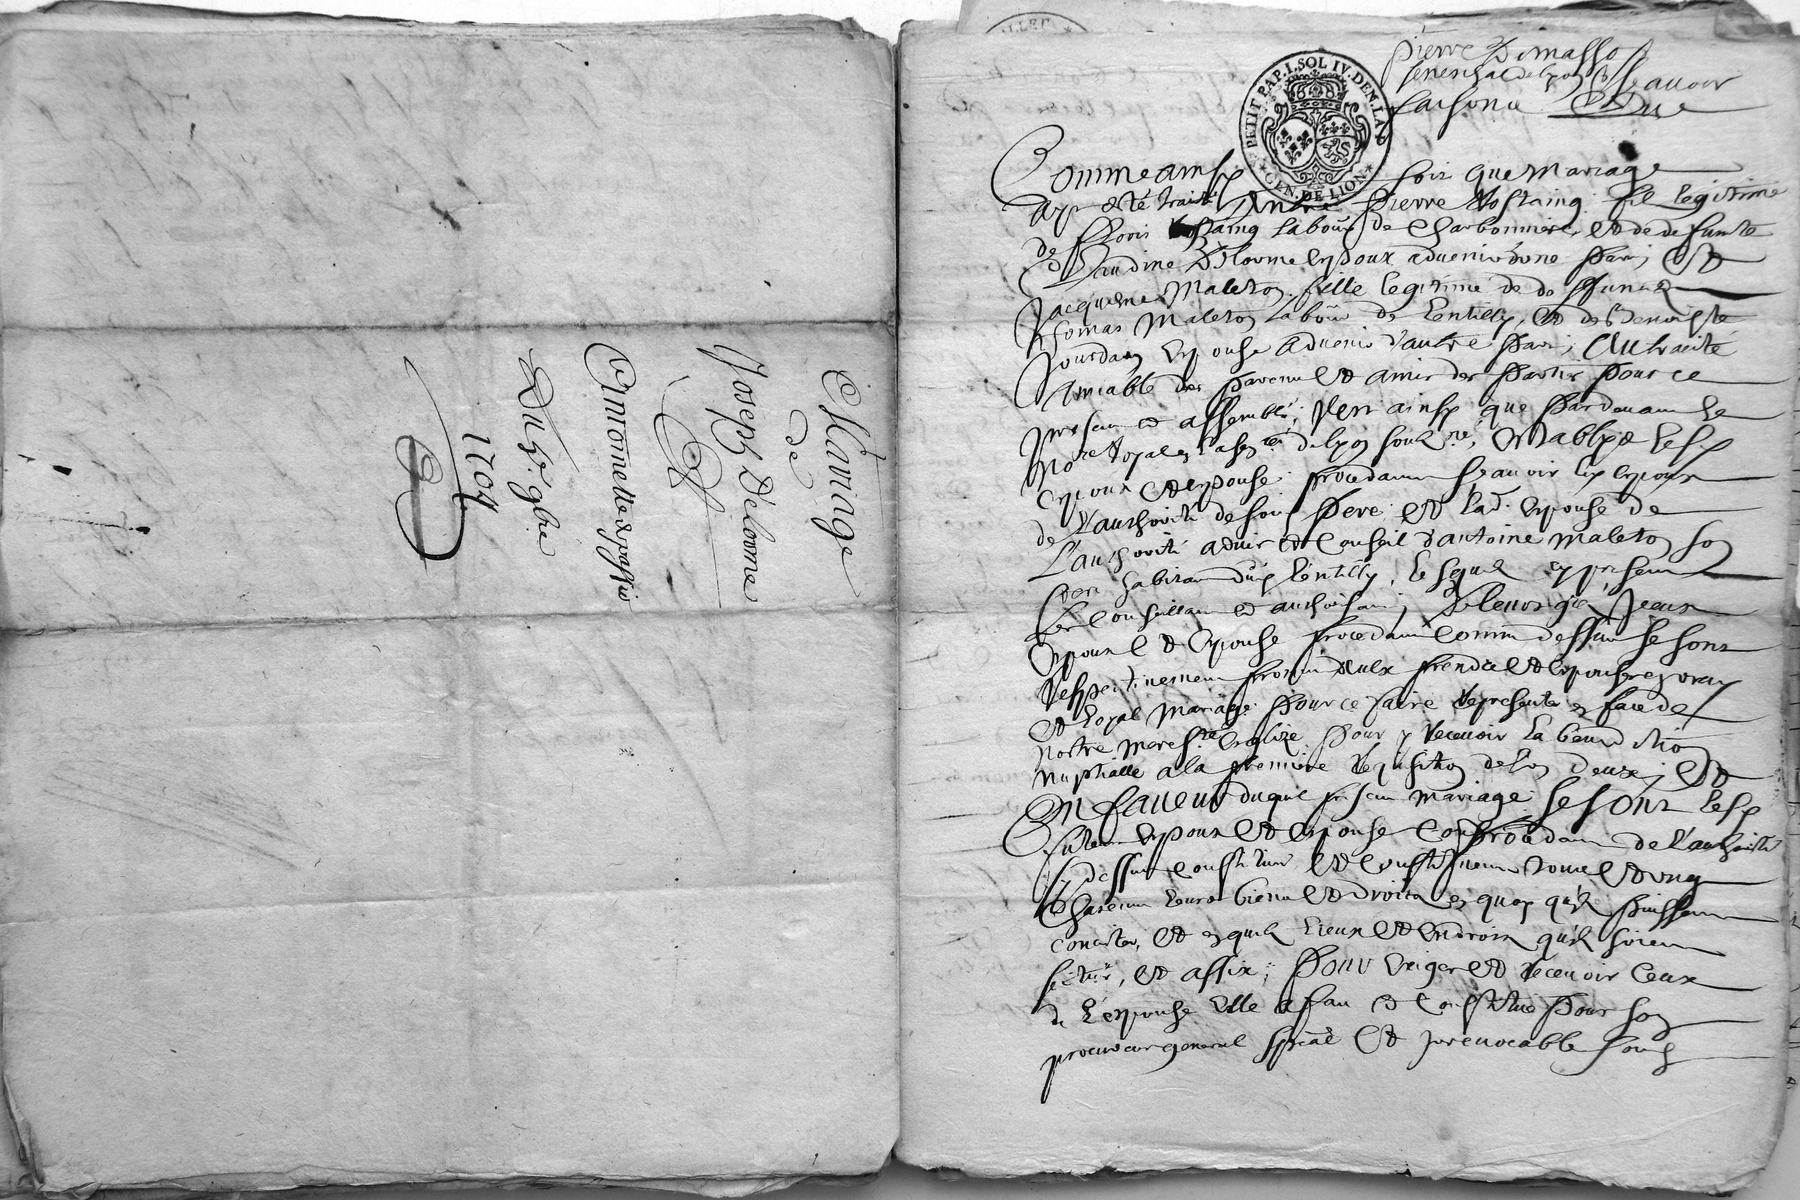 Mariage
de
Joseph Delorme
Et
Anthoinette
Du 5.e 9bre
1701
PETIT PAP. I. SOL IV. DEN. LA F.
GEN. DE LION
Pierre Dimasso
Senechal de Lyon Sçavoir
faisons Que
Comme ainsy soit que Mariage
Aye esté traité Entre Pierre Rostaing fil legitime
de Rostaing Labour de Charbonniere, Et de deffunte
Claudine Delorme Espoux advenir d'une part, Et
Jacqueme Maleton fille legitime de deffunct
Thomas Maleton Labour de Lentilly, Et de Benoiste
Jourdan Espouse advenir d'autre part, Au traicté
Amiable des parens Et amis des parties pour ce
present et assemblé, Il est ainsy que pardevant le
No.re Royal en la sen.ée de Lyon sous.né, Estably
Espoux Et Espouse procedants sçavoir led espoux
de L'authorité de son Pere Et lad. Espouse de
L'authorité advis Et Conseil d'antoine Maleton son
frere habitant dud Lentilly, lesquels cy present
Les Conseillant et authorisant, De leurs gré Iceux
Espoux Et Espouse procedant Comme dessus se sont
Respectivement promis d'eulx prendre Et Espouser en vray
Et Loyal Mariage Pour ce faire se presenter en face de
nostre mere S.te Eglize Pour y Recevoir la benediction
nuptialle a la premiere Requisition de l'un deux, Et
En faveur duquel present mariage Se sont Lesd
futeurs Espoux Et Espouse procedant de l'authorité
cy dessus Constitué Et Constituent tous Et ung
Chascun leurs biens Et droits en quoy quils Puissent
Concister, Et en quels Lieux Et Endroits quils soient
scitué, Et assix, Pour Exiger Et recevoir Ceux
de L'espouse Elle a fait et Constitué Pour son
procureur general special Et Irrevocable